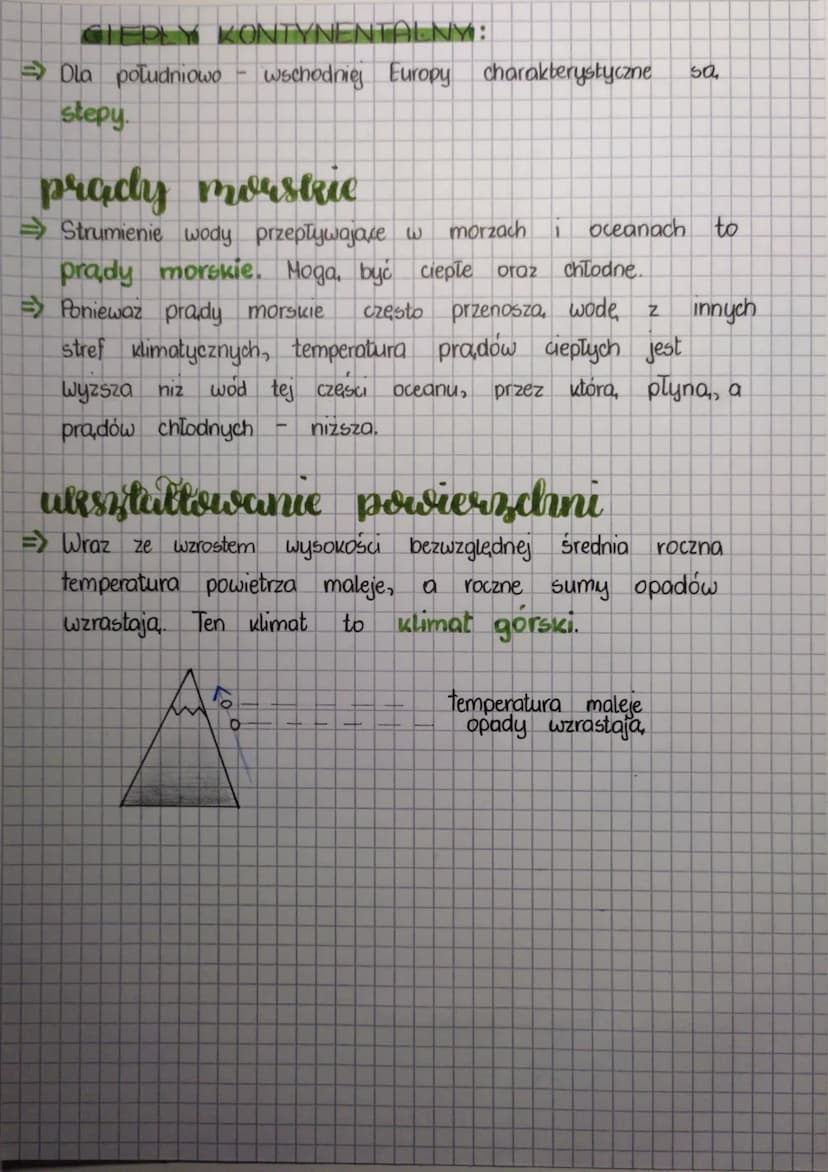 CIEPŁY KONTYNENTALNY:
⇒ Dla południowo - wschodniej Europy charakterystyczne są
stepy.
prądy morskie
⇒ Strumienie wody przepływające w morzach i oceanach to
prądy morskie. Mogą być ciepłe oraz chłodne.
⇒ Ponieważ prądy morskie często przenoszą wodę z innych
stref klimatycznych, temperatura prądów ciepłych jest
wyższa niż wód tej części oceanu, przez którą płyną, a
prądów chłodnych - niższa.
ukształtowanie powierzchni
⇒ Wraz ze wzrostem wysokości bezwzględnej średnia roczna
temperatura powietrza maleje, a roczne sumy opadów
wzrastają. Ten klimat to klimat górski.
temperatura maleje
opady wzrastają